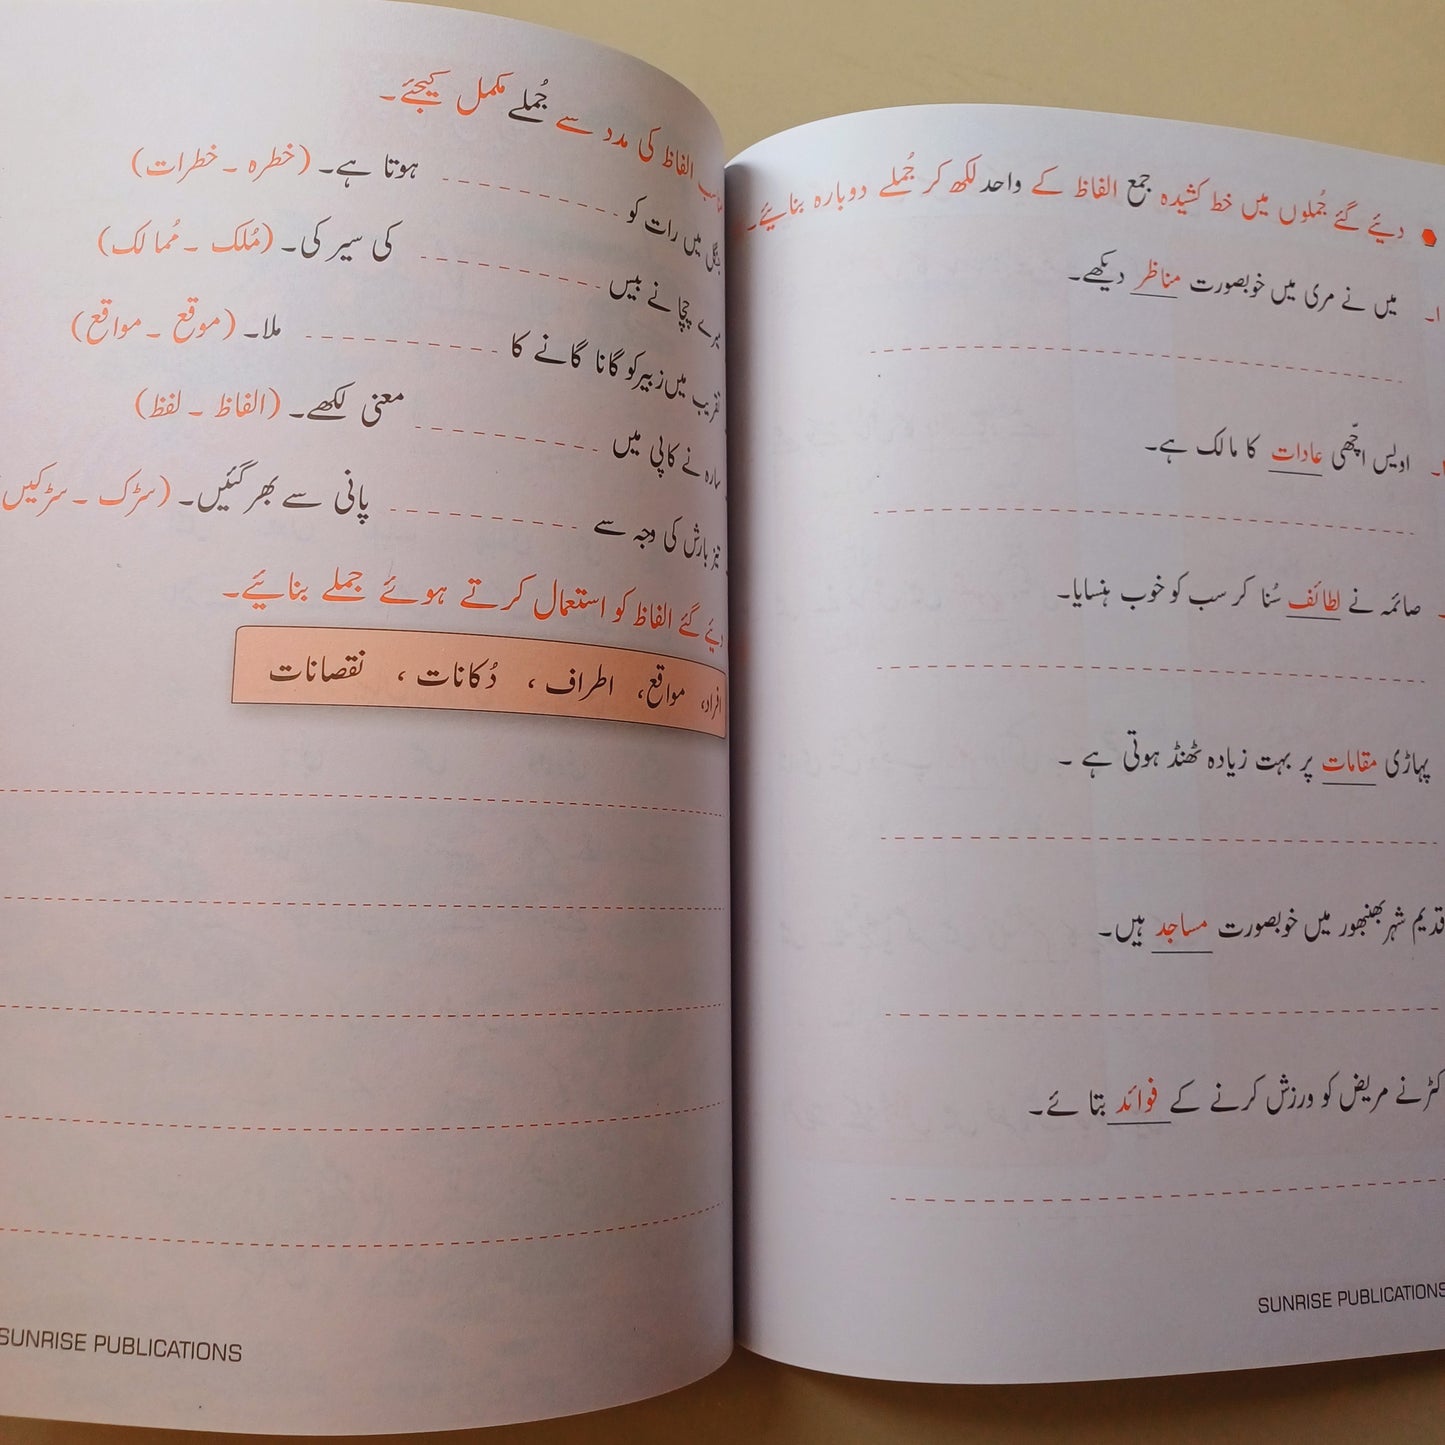 دیئے گئے جُملوں میں خط کشیدہ جمع الفاظ کے واحد لکھ کر جُملے دوبارہ بنائیے۔
۱۔ میں نے مری میں خوبصورت مناظر دیکھے۔
اویس اچّھی عادات کا مالک ہے۔
صائمہ نے لطائف سُنا کر سب کو خوب ہنسایا۔
پہاڑی مقامات پر بہت زیادہ ٹھنڈ ہوتی ہے ۔
قدیم شہر بھنبھور میں خوبصورت مساجد ہیں۔
نے مریض کو ورزش کرنے کے فوائد بتائے۔
SUNRISE PUBLICATIONS
الفاظ کی مدد سے جُملے مکمل کیجئے۔
میں رات کو ہوتا ہے۔ (خطرہ ۔ خطرات)
چچا نے بیس کی سیر کی۔ (مُلک ۔ مُمالک)
تقریب میں زبیر کو گانا گانے کا ملا۔ (موقع ۔ مواقع)
سارہ نے کاپی میں معنی لکھے۔ (الفاظ ۔ لفظ)
تیز بارش کی وجہ سے پانی سے بھر گئیں۔ (سڑک ۔ سڑکیں
دیئے گئے الفاظ کو استعمال کرتے ہوئے جملے بنائیے۔
افراد، مواقع، اطراف ، دُکانات ، نقصانات
SUNRISE PUBLICATIONS